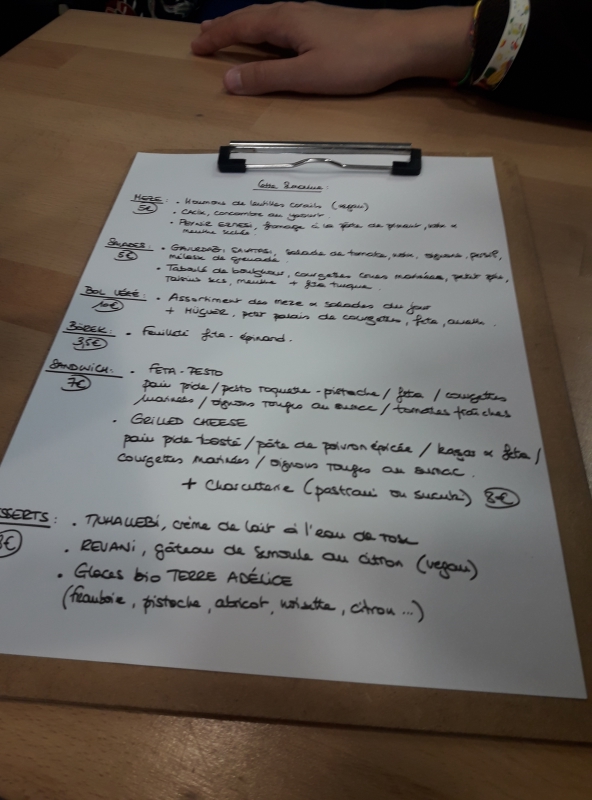 Cette Semaine :
MEZE : • Houmous de lentilles corails (vegan)
5€ • CACIK, concombre au yaourt.
• PEYNIR EZMESI, fromage à la pâte de piment, noix &
menthe séchée.
SALADES : • GAVURDAĞI SALATASI, salade de tomate, noix, oignons, persil,
5€ mélasse de grenade
• Taboulé de boulghour, courgettes crues marinées, petit pois,
raisins secs, menthe + feta turque.
BOL VÉGÉ : • Assortiment des meze & salades du jour
10€ + MÜCVER, petit palais de courgettes, feta, aneth.
BÖREK : • Feuilleté feta - épinard.
3,5€
SANDWICH : • FETA - PESTO
7€ pain pide / pesto roquette - pistache / feta / courgettes
marinées / oignons rouges au sumac / tomates fraîches
• GRILLED CHEESE
pain pide toasté / pâte de poivron épicée / kaşar & feta /
courgettes marinées / oignons rouges au sumac.
+ charcuterie (pastrami ou sucuk) 8€
ESSERTS : • MUHALLEBI, crème de lait à l'eau de rose
€ • REVANI, gâteau de semoule au citron (vegan)
• Glaces bio TERRE ADÉLICE
(framboise, pistache, abricot, noisette, citron ...)